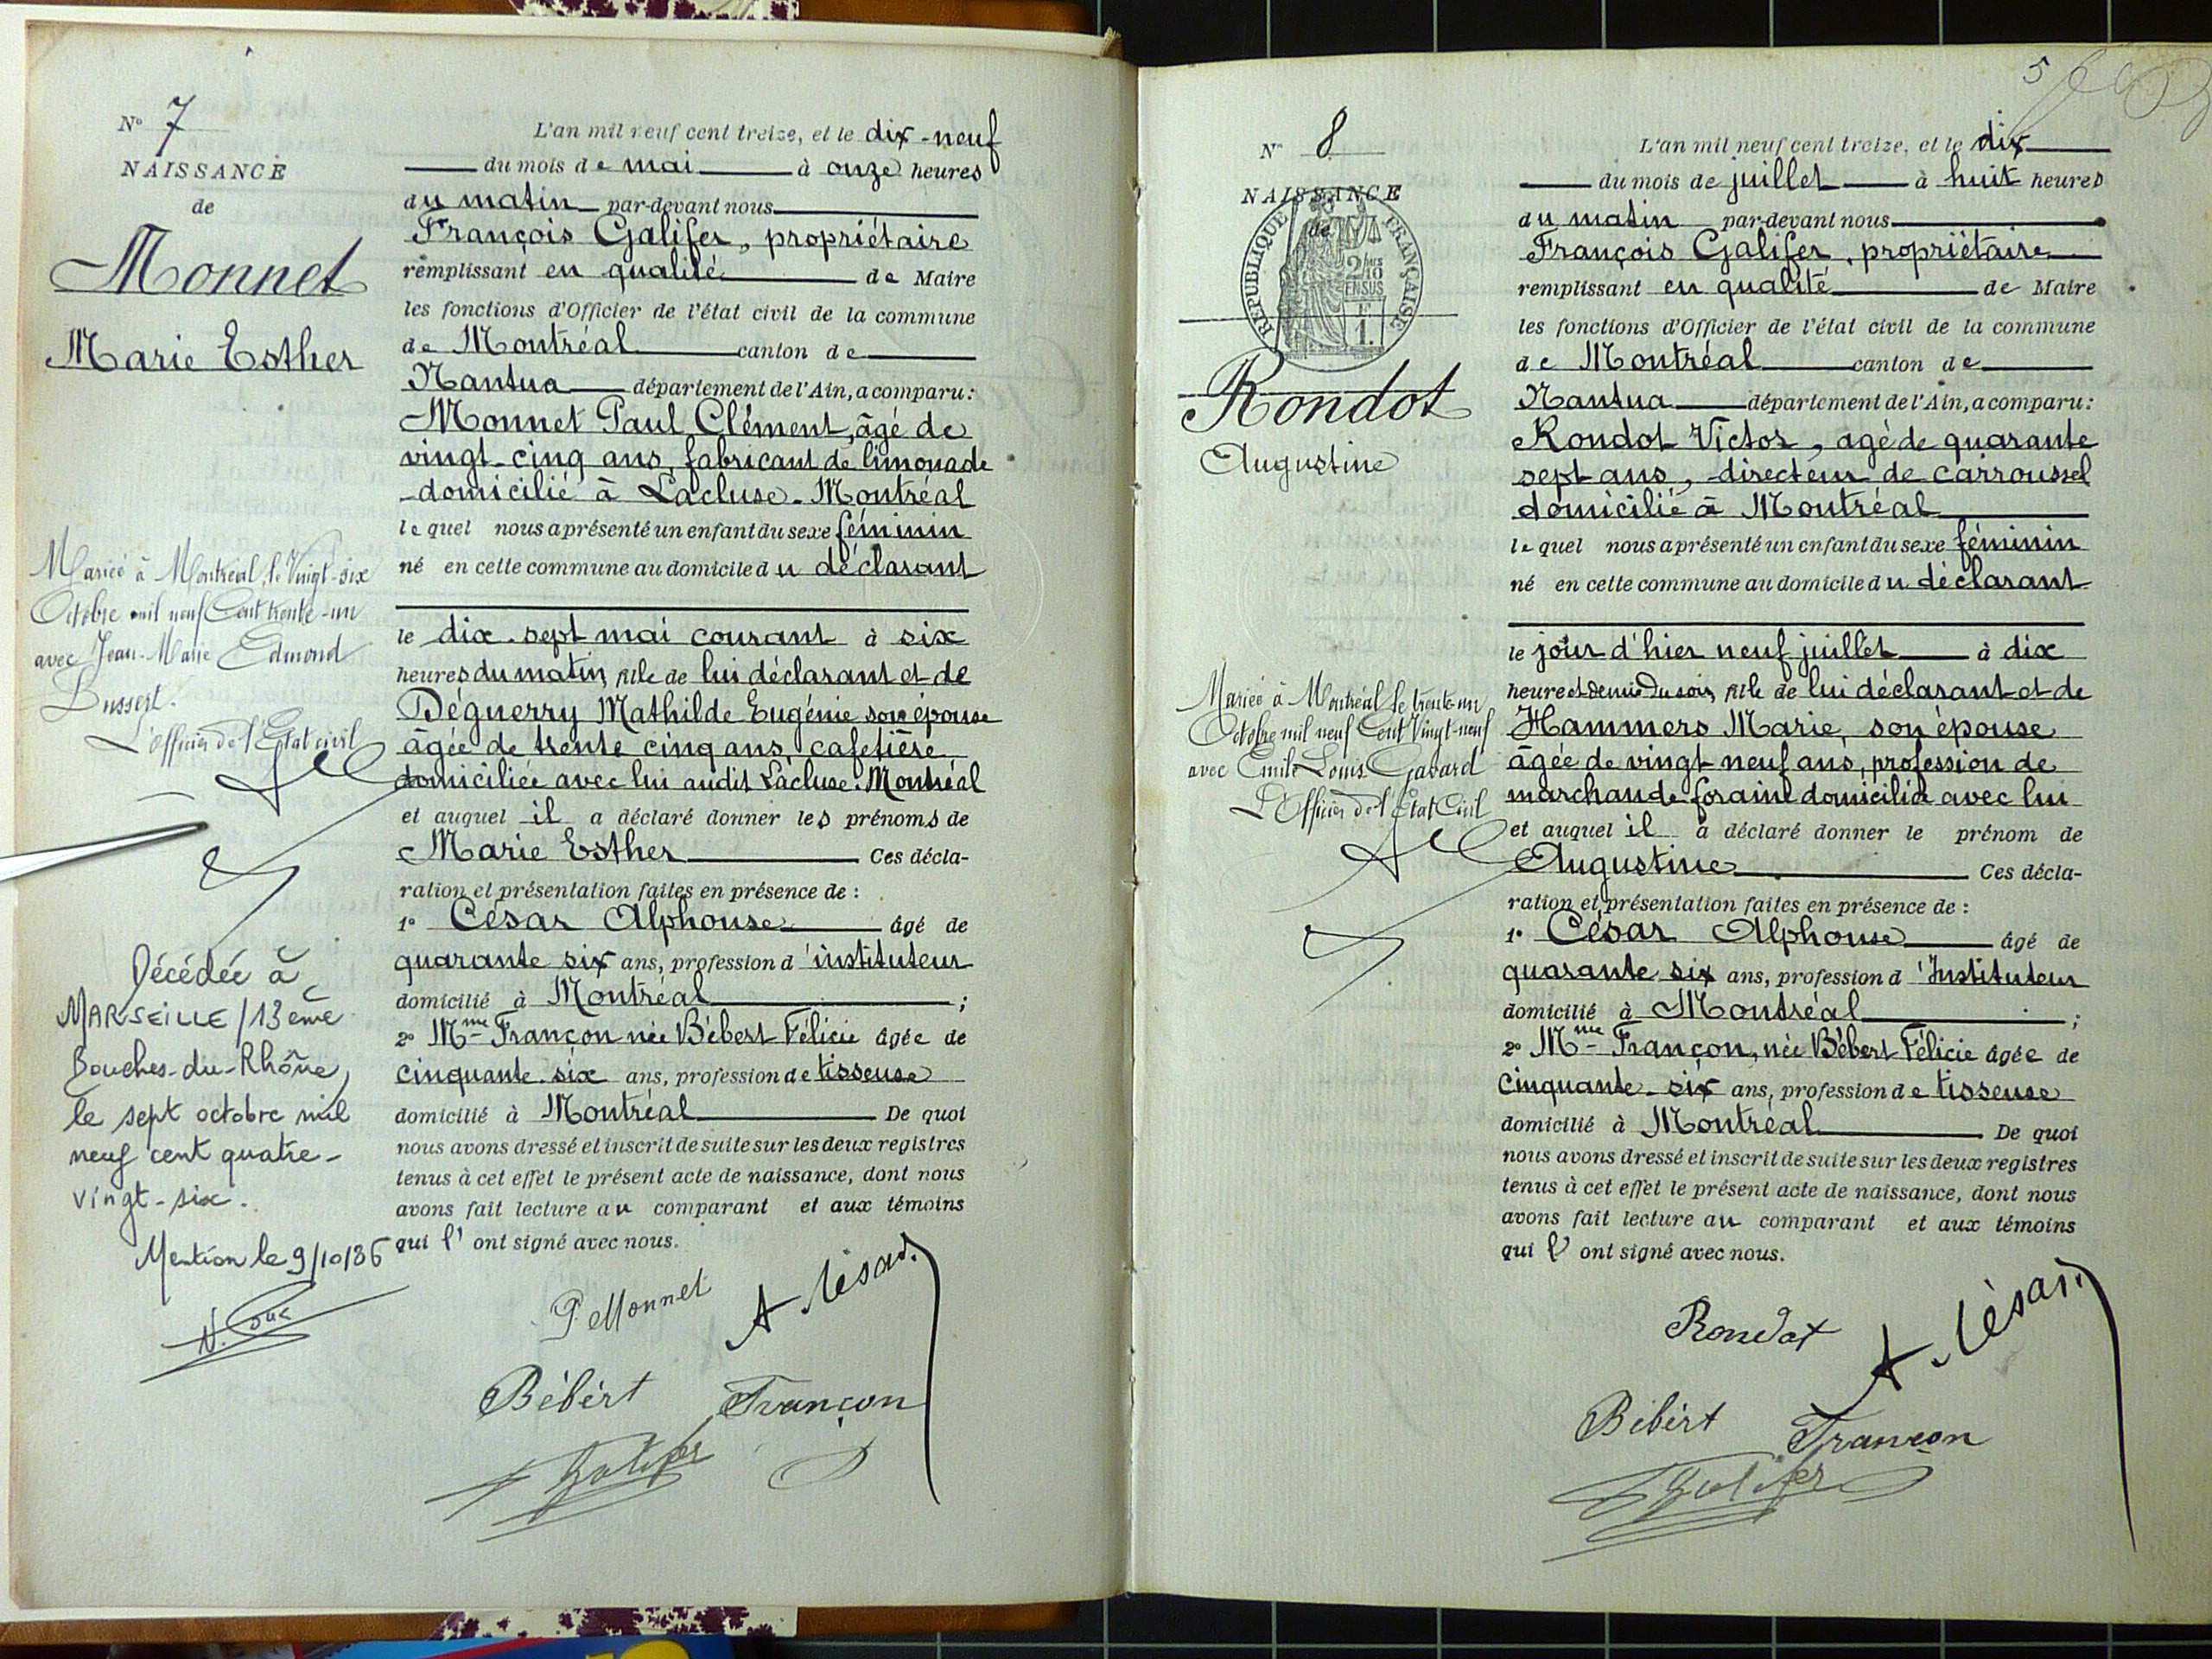 N° 7
NAISSANCE
de
Monnet
Marie Esther
Mariée à Montréal, le Vingt-six
Octobre mil neuf Cent trente-un
avec Jean-Marie Edmond
Dussert.
L'Officier de l'Etat civil
Décédée à
MARSEILLE / 13ème
Bouches-du-Rhône,
le sept octobre mil
neuf cent quatre-
vingt-six.
Mention le 9/10/86
L'an mil neuf cent treize, et le dix-neuf
du mois de mai à onze heures
du matin par-devant nous
François Galifer, propriétaire
remplissant en qualité de Maire
les fonctions d'Officier de l'état civil de la commune
de Montréal canton de
Nantua département de l'Ain, a comparu:
Monnet Paul Clément, âgé de
vingt-cinq ans, fabricant de limonade
domicilié à Lacluse-Montréal
lequel nous a présenté un enfant du sexe féminin
né en cette commune au domicile du déclarant
le dix-sept mai courant à six
heures du matin, fille de lui déclarant et de
Déguerry Mathilde Eugénie son épouse
âgée de trente cinq ans, cafetière
domiciliée avec lui audit Lacluse-Montréal
et auquel il a déclaré donner les prénoms de
Marie Esther Ces décla-
ration et présentation faites en présence de:
1° César Alphonse âgé de
quarante six ans, profession d'instituteur
domicilié à Montréal ;
2° Mme Françon née Bébert Félicie âgée de
cinquante-six ans, profession de tisseuse
domicilié à Montréal De quoi
nous avons dressé et inscrit de suite sur les deux registres
tenus à cet effet le présent acte de naissance, dont nous
avons fait lecture au comparant et aux témoins
qui l'ont signé avec nous.
P. Monnet A. César
Bébért Françon
Galifer
5
N° 8
NAISSANCE
de
REPUBLIQUE FRANÇAISE
2/10
EN SUS
1.
Rondot
Augustine
Mariée à Montréal, le trente-un
Octobre mil neuf Cent Vingt-neuf
avec Emile Louis Gavard
L'Officier de l'Etat Civil
L'an mil neuf cent treize, et le dix
du mois de juillet à huit heures
du matin par-devant nous
François Galifer, propriétaire
remplissant en qualité de Maire
les fonctions d'Officier de l'état civil de la commune
de Montréal canton de
Nantua département de l'Ain, a comparu:
Rondot Victor, agé de quarante
sept ans, directeur de carroussel
domicilié à Montréal
lequel nous a présenté un enfant du sexe féminin
né en cette commune au domicile du déclarant
le jour d'hier neuf juillet à dix
heure et demie du soir, fille de lui déclarant et de
Hammers Marie, son épouse
âgée de vingt-neuf ans, profession de
marchande foraine domiciliée avec lui
et auquel il a déclaré donner le prénom de
Augustine Ces décla-
ration et présentation faites en présence de:
1° César Alphonse âgé de
quarante six ans, profession d'Instituteur
domicilié à Montréal ;
2° Mme Françon, née Bébert Félicie âgée de
cinquante-six ans, profession de tisseuse
domicilié à Montréal De quoi
nous avons dressé et inscrit de suite sur les deux registres
tenus à cet effet le présent acte de naissance, dont nous
avons fait lecture au comparant et aux témoins
qui l'ont signé avec nous.
Rondot A. César
Bébért Françon
Galifer